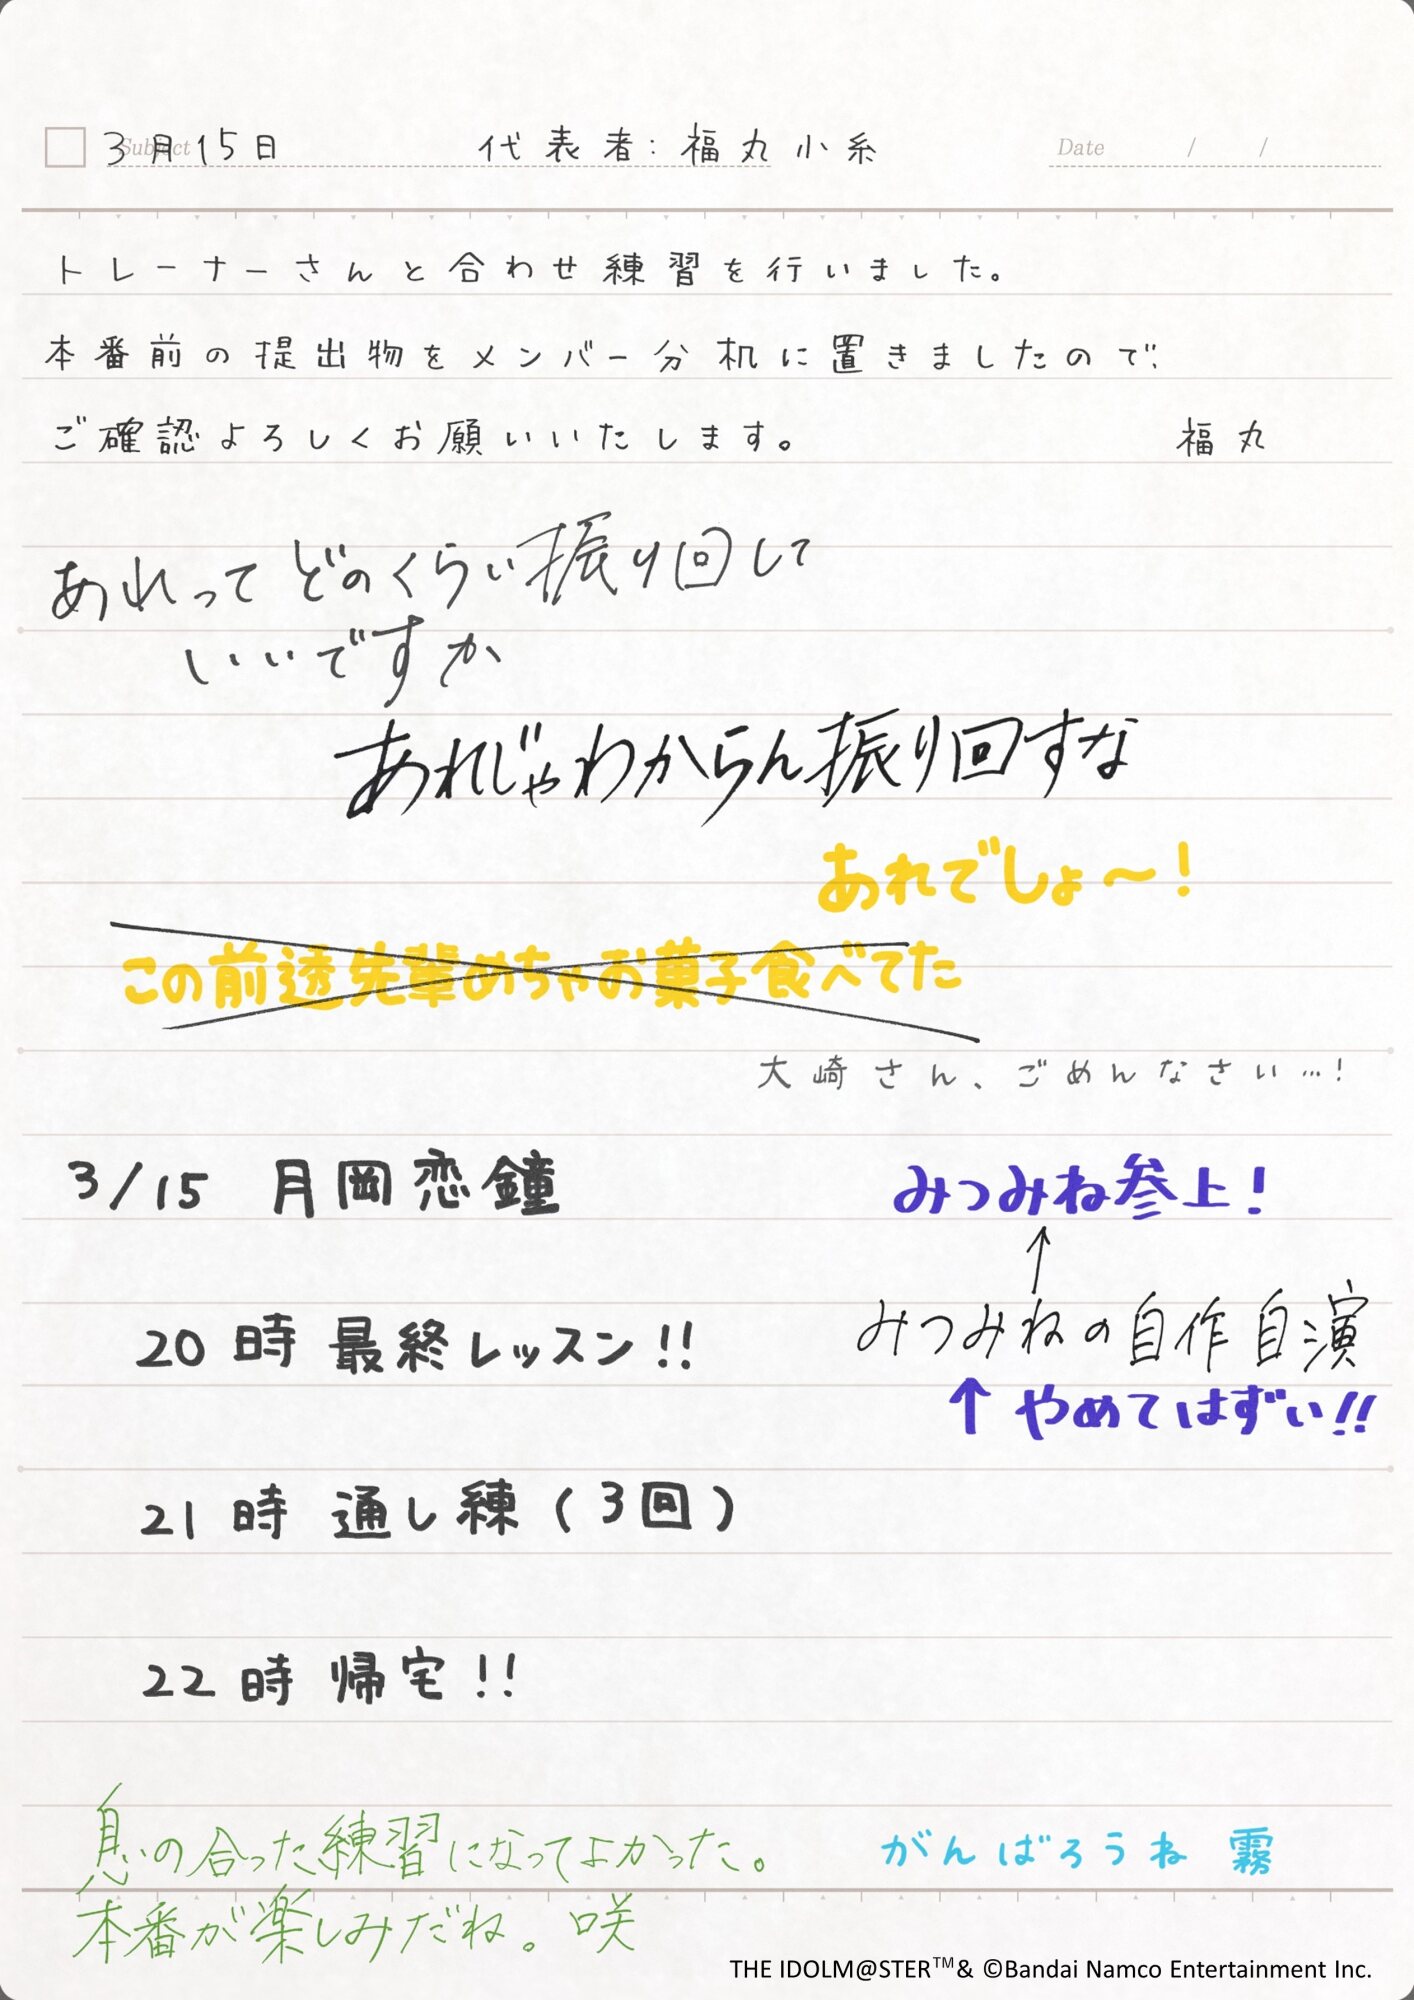 Subject
3月15日 代表者:福丸小糸 Date / /
トレーナーさんと合わせ練習を行いました。
本番前の提出物をメンバー分机に置きましたので、
ご確認よろしくお願いいたします。 福丸
あれってどのくらい振り回して
いいですか
あれじゃわからん振り回すな
あれでしょ〜!
この前透先輩めちゃお菓子食べてた
大崎さん、ごめんなさい…!
3/15 月岡恋鐘
みつみね参上!
↑
みつみねの自作自演
↑やめてはずい!!
20時 最終レッスン!!
21時 通し練(3回)
22時 帰宅!!
息の合った練習になってよかった。
本番が楽しみだね。 咲
がんばろうね 霧
THE IDOLM@STER™& ©Bandai Namco Entertainment Inc.